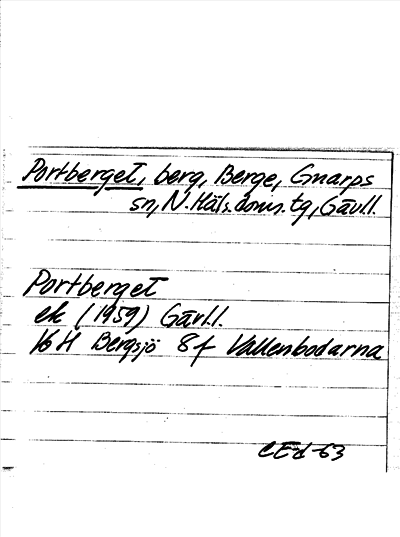 Portberget, berg, Berge, Gnarps
sn, N. Häls. doms. tg, Gävl.l.
Portberget
ek (1959) Gävl.l.
16 H Bergsjö 8f Vallenbodarna
CEd-63